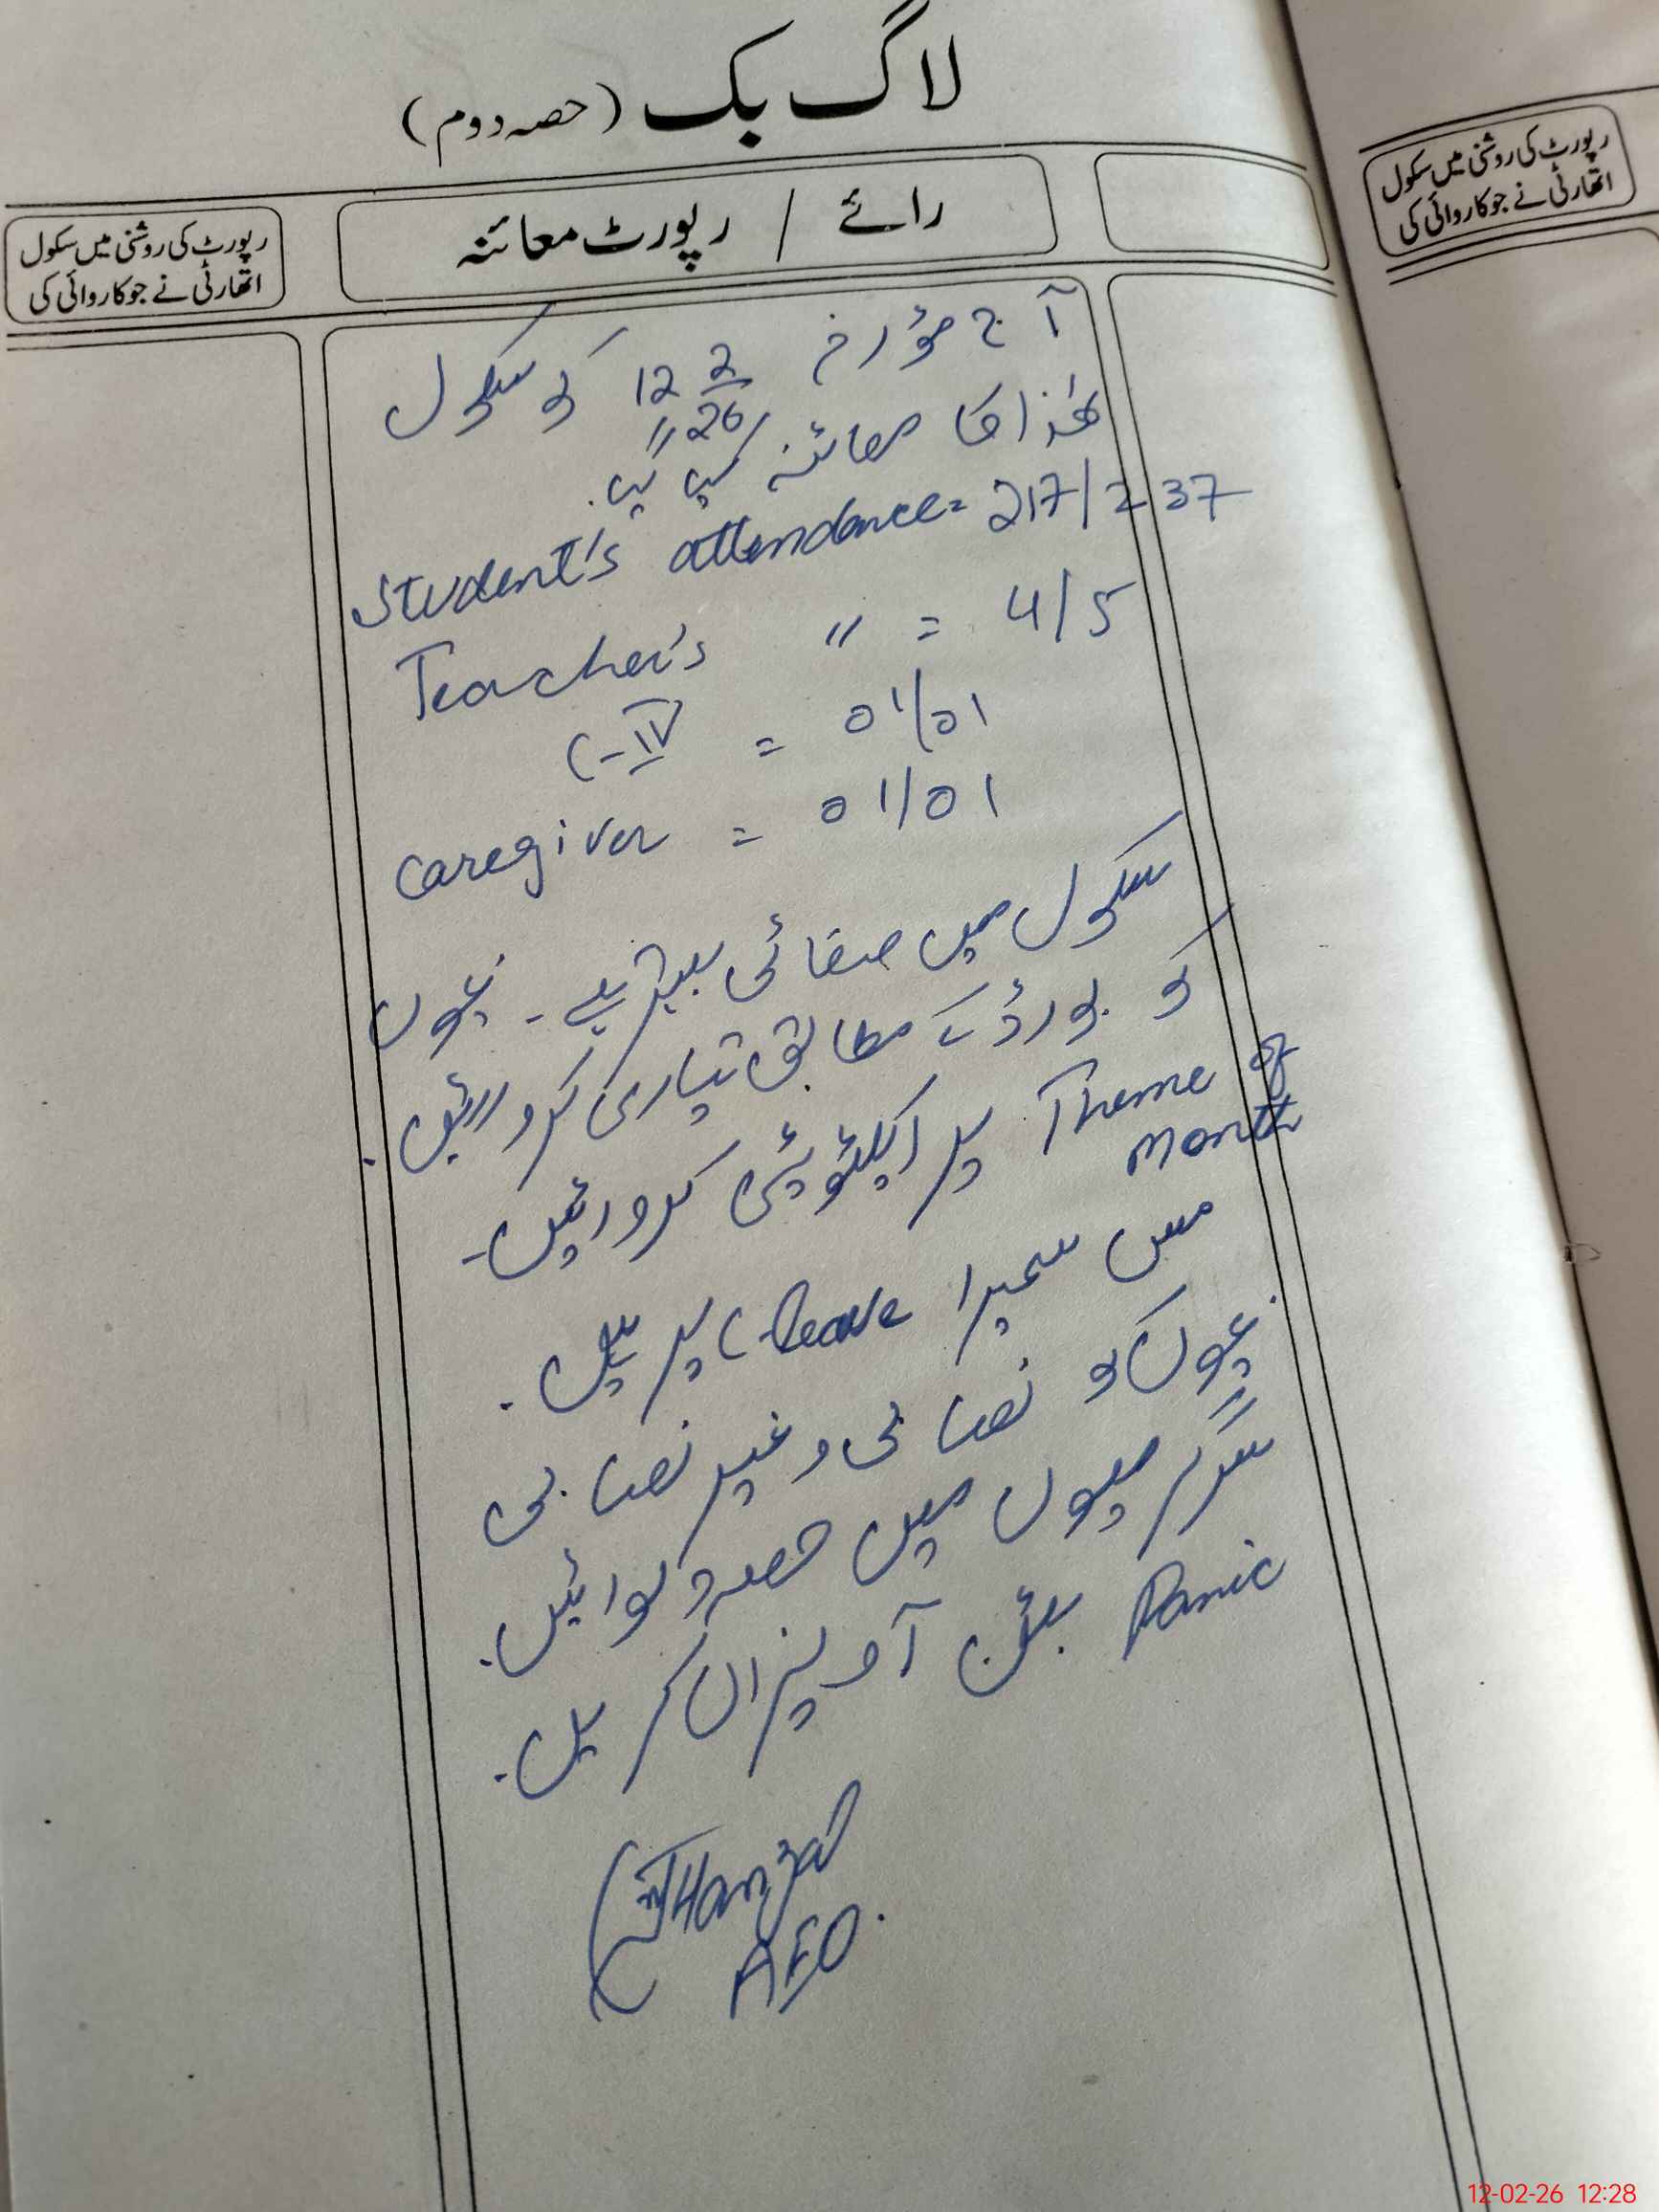 لاگ بک (حصہ دوم)
رپورٹ کی روشنی میں سکول
اتھارٹی نے جو کاروائی کی
رائے / رپورٹ معائنہ
رپورٹ کی روشنی میں سکول
اتھارٹی نے جو کاروائی کی
آج مؤرخہ 12 2/26 کو سکول
ھٰذا کا معائنہ کیا گیا۔
Student's attendance = 217/237
Teacher's " = 4/5
C-IV = 01/01
caregiver = 01/01
سکول میں صفائی بہتر ہے۔ بچوں
کو بورڈ کے مطابق تیاری کروائیں۔
Theme of پر ایکٹویٹی کروائیں۔
Month
مس سمیرا C-leave پر ہیں۔
بچوں کو نصابی و غیر نصابی
سرگرمیوں میں حصہ دلوائیں۔
Panic بٹن آویزاں کریں۔
AEO.
12-02-26 12:28